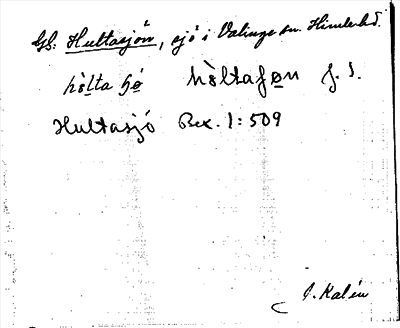 Gs. Hultasjön, sjö i Valinge sn. Himle hd.
hòlta ʃø̀ hòltaʃøn f. S.
Hultasjó Rex. 1:509
J. Kalén